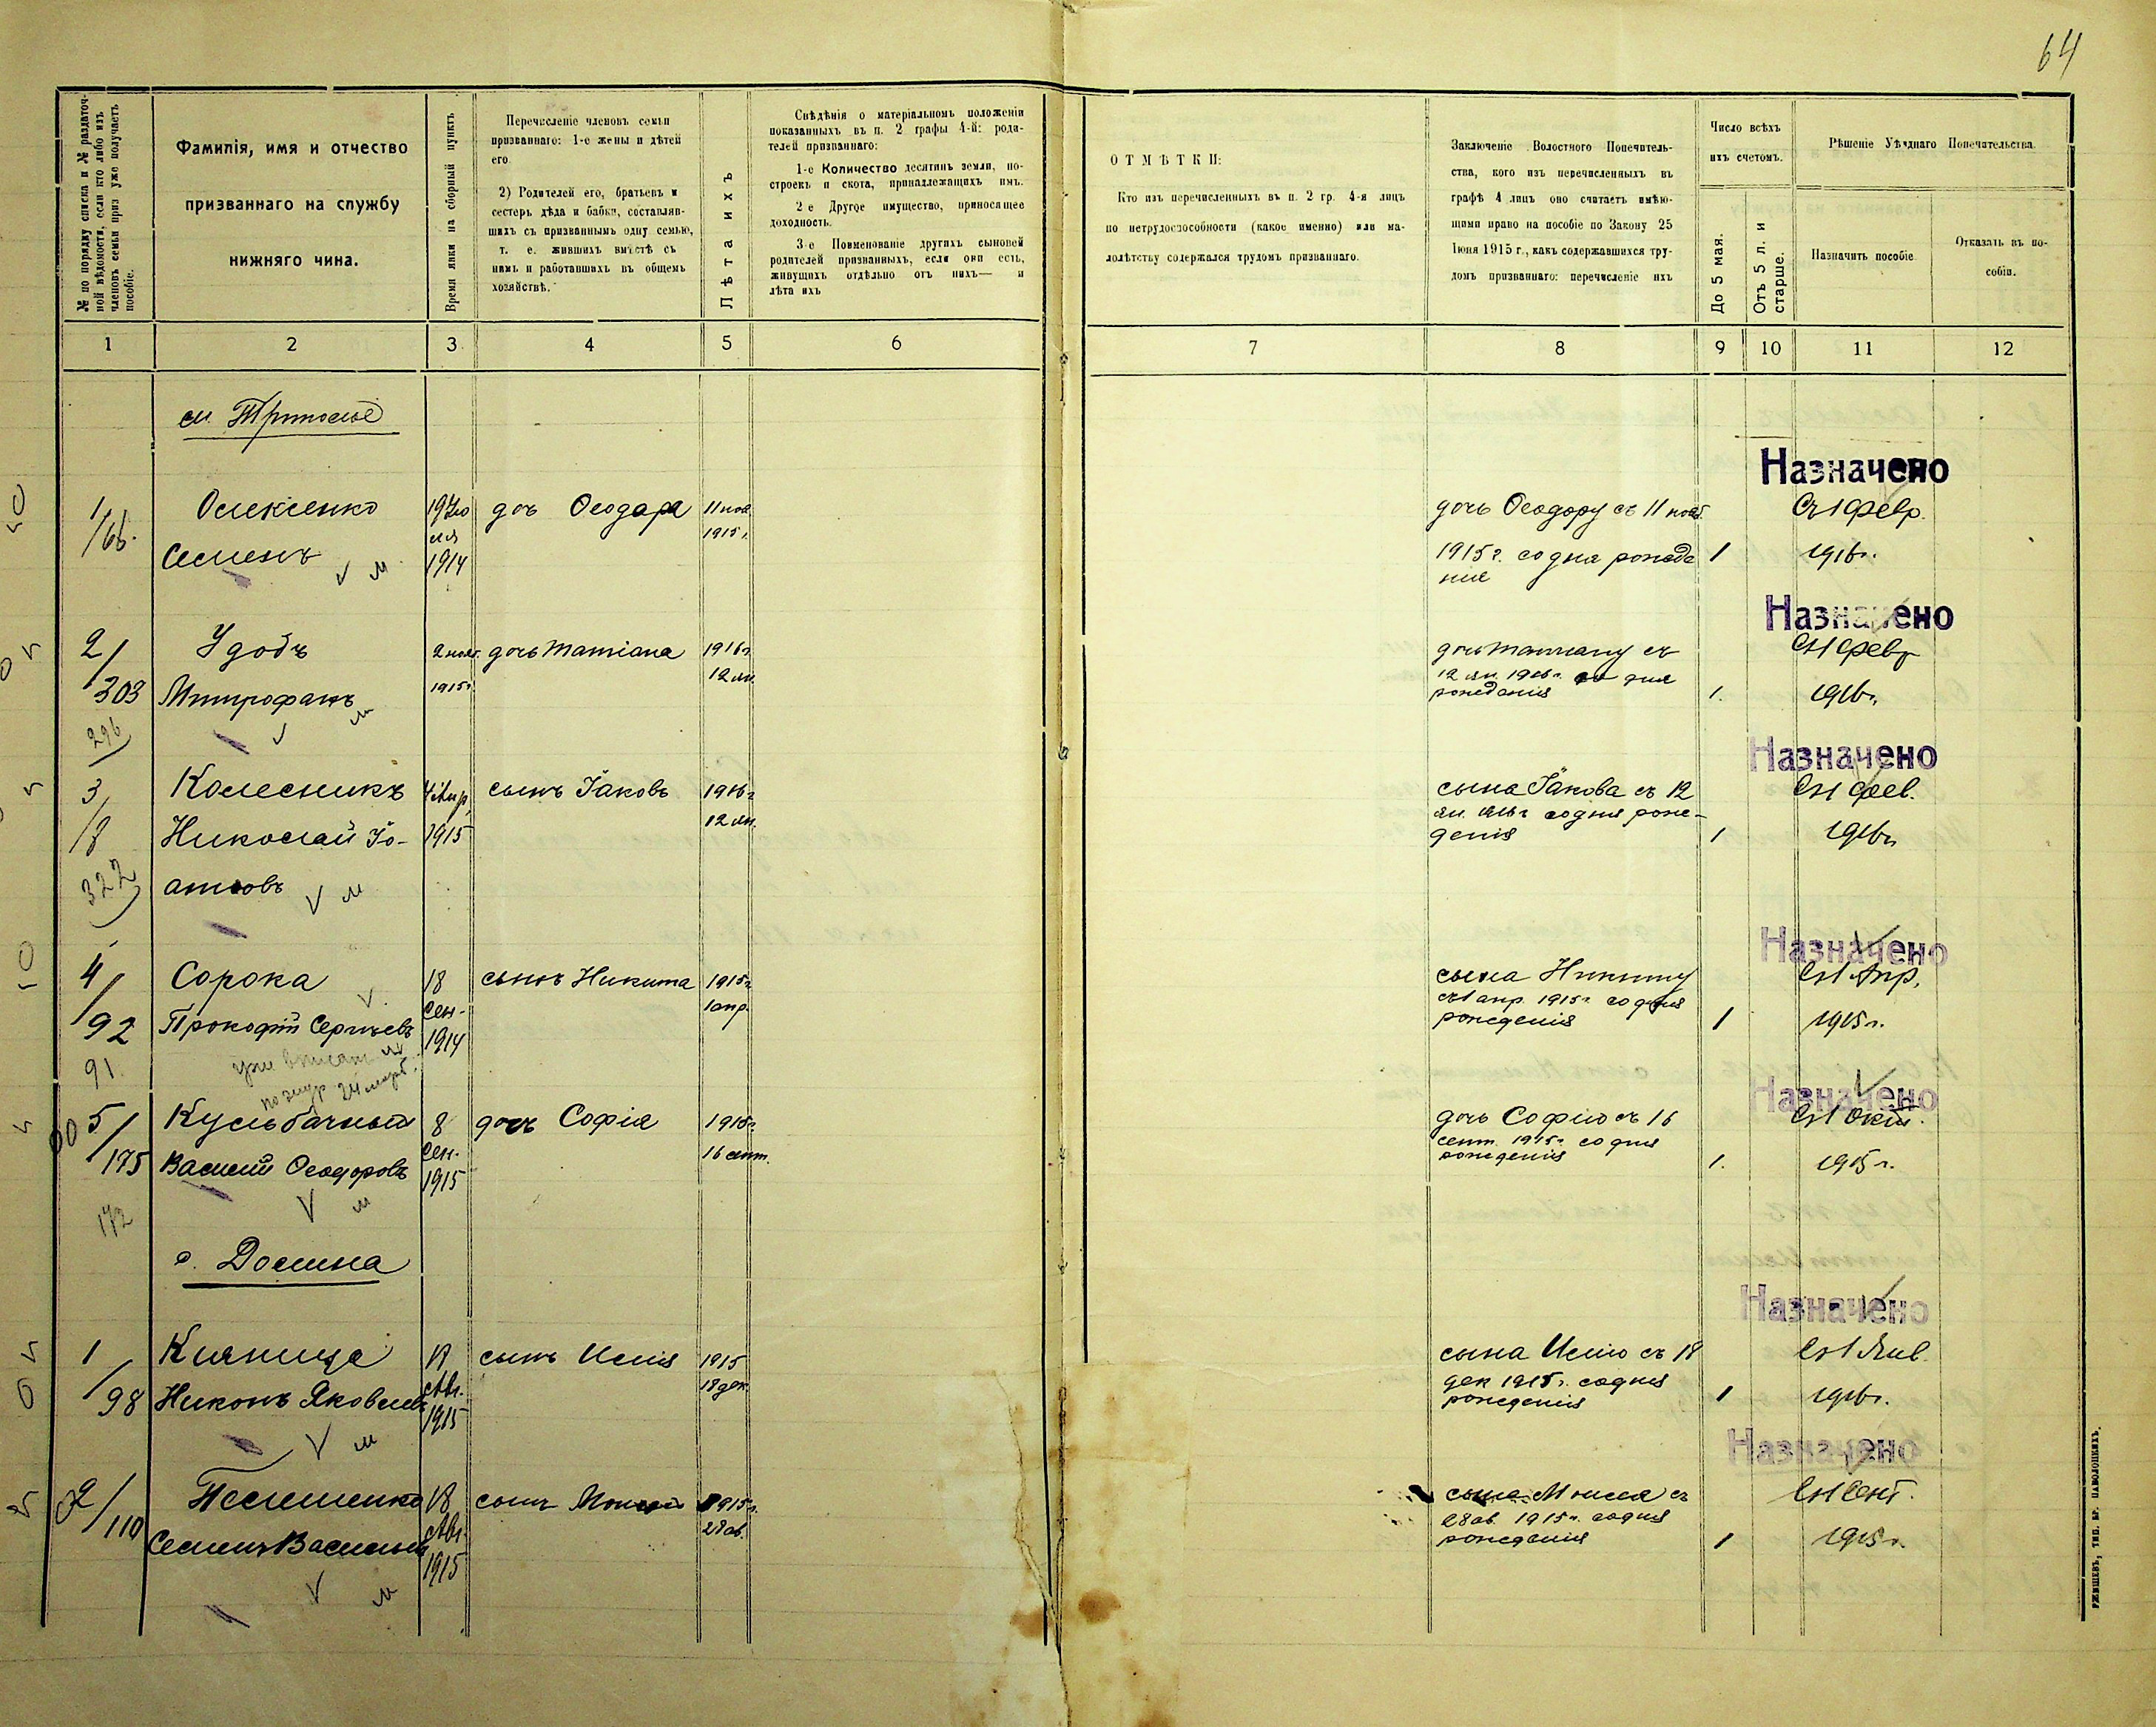 64
№ по порядку списка и № раздаточ-
ной вѣдомости, если кто либо изъ
членовъ семьи приз уже получаетъ
пособіе.
Фамилія, имя и отчество
призваннаго на службу
нижняго чина.
Время явки на сборный пунктъ
Перечисленіе членовъ семьи
призваннаго: 1-е жены и дѣтей
его
2) Родителей его, братьевъ и
сестеръ дѣда и бабки, составляв-
шихъ съ призваннымъ одну семью,
т. е. жившихъ вмѣстѣ съ
нимъ и работавшихъ въ общемъ
хозяйствѣ.
Лѣта ихъ
Свѣдѣнія о матеріальномъ положеніи
показанныхъ въ п. 2 графы 4-й: роди-
телей призваннаго:
1-е Количество десятинъ земли, по-
строекъ и скота, принадлежащихъ имъ.
2 е Другое имущество, приносящее
доходность.
3-е Поименованіе другихъ сыновей
родителей призванныхъ, если они есть,
живущихъ отдѣльно отъ нихъ— и
лѣта ихъ
ОТМѢТКИ:
Кто изъ перечисленныхъ въ п. 2 гр. 4-я лицъ
по нетрудоспособности (какое именно) или ма-
лолѣтству содержался трудомъ призваннаго.
Заключеніе Волостного Попечитель-
ства, кого изъ перечисленныхъ въ
графѣ 4 лицъ оно считаетъ имѣю-
щими право на пособіе по Закону 25
Іюня 1915 г., какъ содержавшихся тру-
домъ призваннаго: перечисленіе ихъ
Число всѣхъ
ихъ счетомъ.
До 5 мая.
Отъ 5 л. и
старше.
Рѣшеніе Уѣзднаго Попечительства.
Назначить пособіе
Отказать въ по-
собіи.
1 2 3 4 5 6 7 8 9 10 11 12
м. Триполье
Назначено
1/65. Олексіенко 19 Ію доч Ѳеодора 11 ноя дочь Ѳеодору съ 11 нояб. Съ 1 февр.
Семенъ ля 1914 1915 г. 1915 г. со дня рожде 1 1916 г.
нія
Назначено
2/303 Удобъ 2 нояб. дочь Татіана 1916 г. дочь Татіану съ Съ 1 февр
Митрофанъ 1915 г. 12 ян. 12 ян. 1916 г. со дня
рожденія 1. 1916 г.
296
Назначено
3/ Колесникъ 4 Апр. сынъ Іаковъ 1916 г. сына Іакова съ 12 Съ 1 фев.
Николай Іо- 1915 12 ян. ян. 1916 г со дня рож-
денія 1 1916 г.
322
Назначено
4/92 Сорока 18 сынъ Никита 1915 г. сына Никиту Съ 1 Апр.
Прокофій Сергѣевъ Сен- 1914 1 апр. съ 1 апр. 1915 г. со дня
рожденія 1 1915 г.
91.
Назначено
5/175 Кульбачный 8 дочь Софія 1915 г. дочь Софію съ 16 Съ 1 Окт.
Василій Ѳеодоровъ Сен. 1915 16 сент. сент. 1915 г. со дня
рожденія 1. 1915 г.
172
с. Долина
Назначено
1/98 Кияница сынъ Илія 1915 сына Илію съ 18 Съ 1 Янв.
Никонъ Яковлевъ Авг. 1915 18 дек. дек 1915 г. со дня
рожденія 1 1916 г.
Назначено
2/110 18 сынъ Моисей 1915 г. сына Моисея съ Съ 1 Сент.
Семенъ Васильев Авг. 1915 28 ав. 28 ав. 1915 г. со дня
рожденія 1 1915 г.
РЖИЩЕВЪ, ТИП. БР. ПАВОЛОЦКИХЪ.